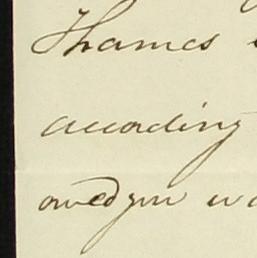 Thames
according
owed you